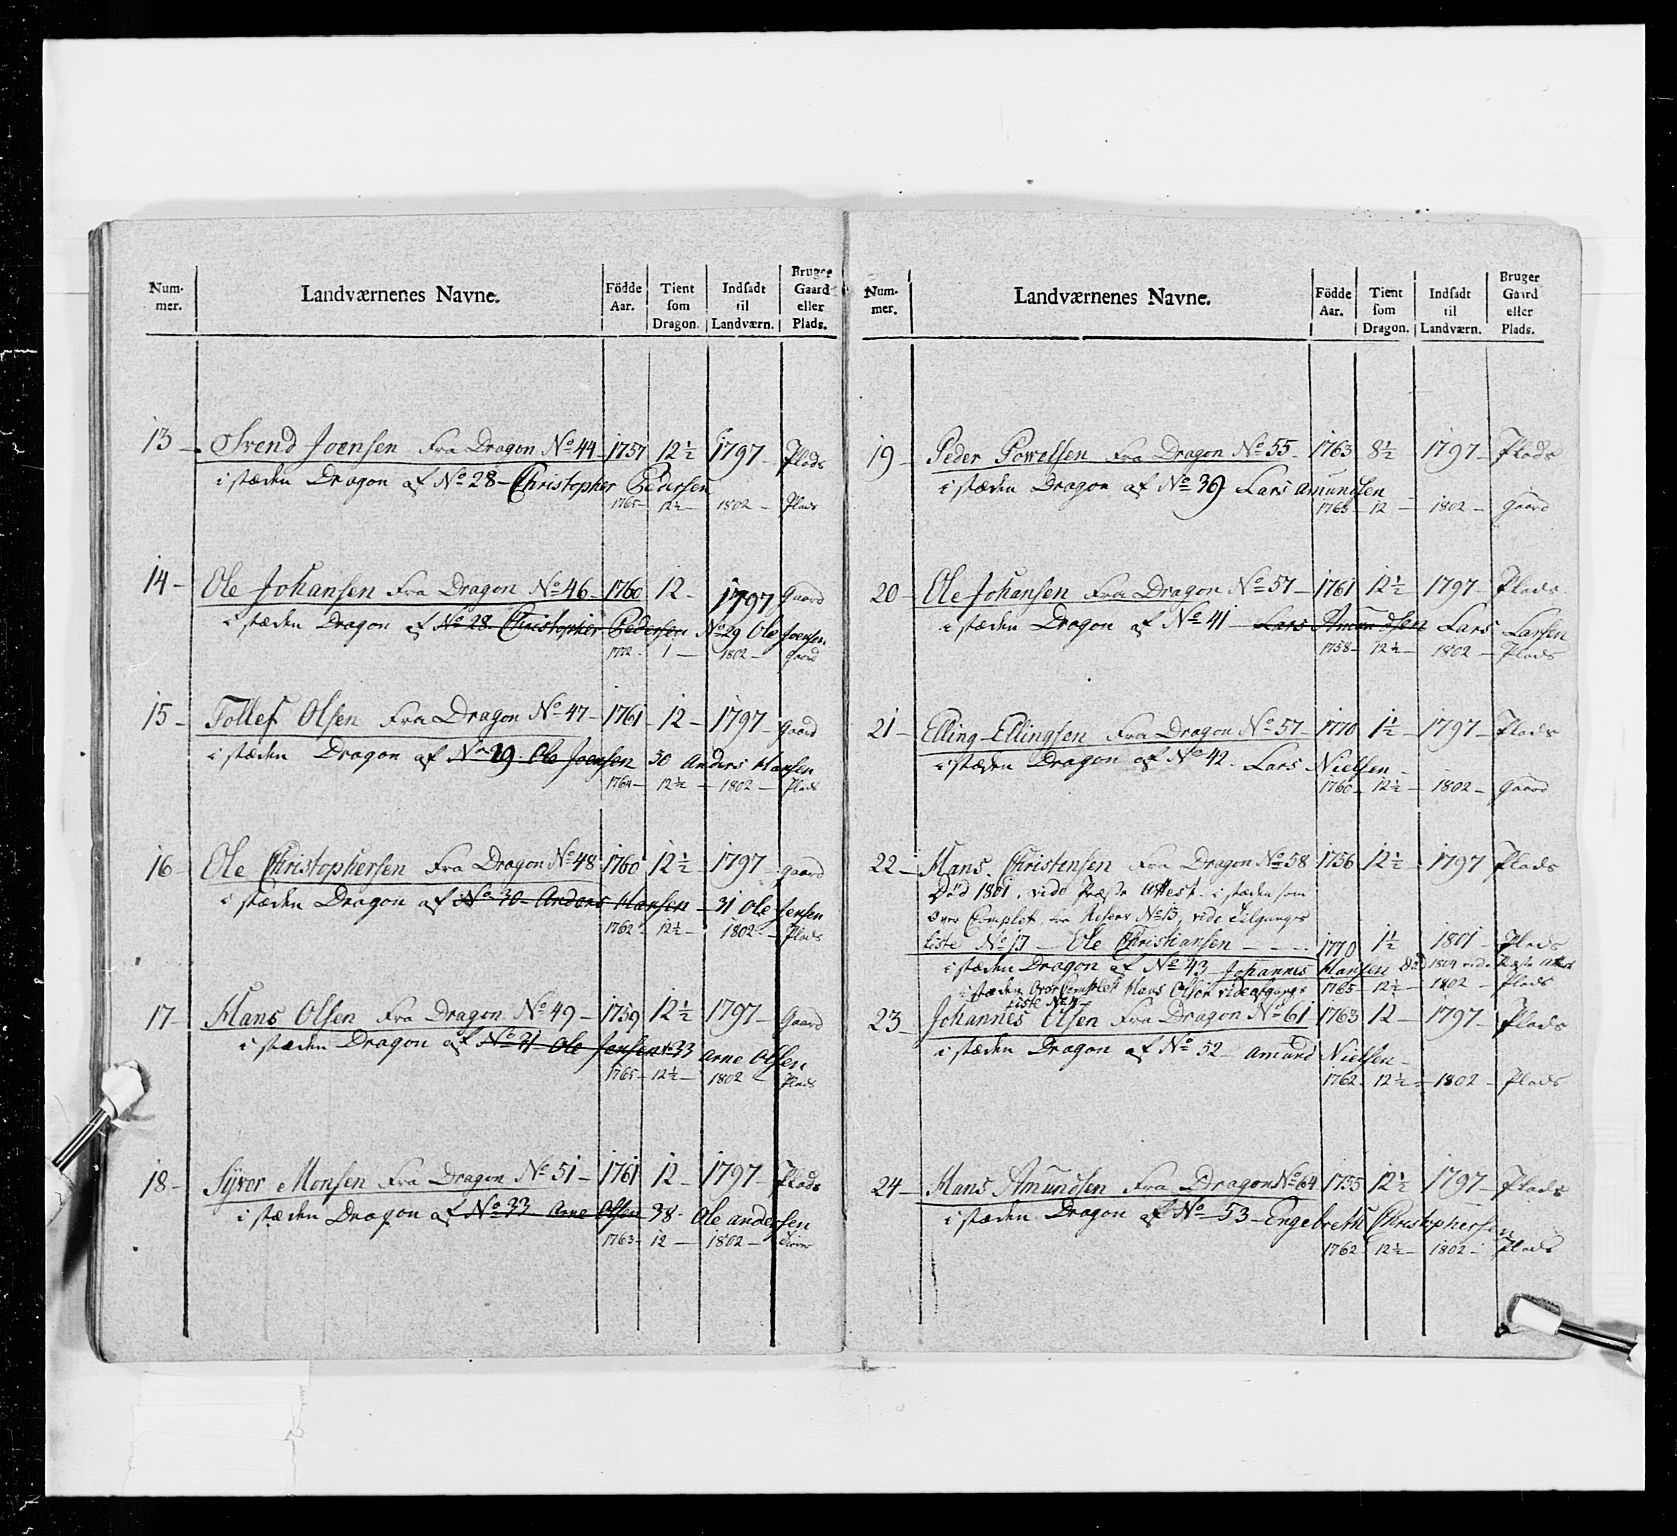 Num-mer. | Landværnenes Navne. | Födde Aar. | Tient som Dragon. | Indsadt til Landværn. | Bruger Gaard eller Plads.
13 - Svend Joensen Fra Dragon No 44 - 1757 12½ 1797 - Plads
i stæden Dragon af No 28 - Christopher Pedersen
1765 - 12½ - 1802 - Plads
14 - Ole Johansen Fra Dragon No 46 - 1760 12 - 1797 Gaard
i stæden Dragon af No 28 Christopher Pedersen No 29 Ole Joensen
1772 - 1 - 1802 - Gaard
15 - Tollef Olsen Fra Dragon No 47 - 1761 - 12 - 1797 - Gaard
i stæden Dragon af No 29 - Ole Joensen 30 Anders Hansen
1764 - 12½ - 1802 - Plads
16 Ole Christophersen Fra Dragon No 48 1760 12½ - 1797 - Gaard
i stæden Dragon af No 30 - Anders Hansen - 31 Ole Jensen
1762 - 12½ - 1802 - Plads
17 - Hans Olsen Fra Dragon No 49 - 1759 12½ 1797 - Gaard
i stæden Dragon af No 31 Ole Jensen 33 Arne Olsen
1765 - 12½ - 1802 - Plads
18 - Syver Monsen Fra Dragon No 51 - 1761 12 - 1797 - Plads
i stæden Dragon af No 33 Arne Olsen 38 - Ole andersen
1763 - 12 - 1802 -
Num-mer. | Landværnenes Navne. | Födde Aar. | Tient som Dragon. | Indsadt til Landværn. | Bruger Gaard eller Plads.
19 - Peder Powelsen Fra Dragon No 55 - 1763 8½ 1797 - Plads
i stæden Dragon af No 39 Lars Amundsen
1765 - 12 - 1802 - Gaard
20 - Ole Johansen Fra Dragon No 57 - 1761 12½ 1797 - Plads
i stæden Dragon af No 41 - Lars Amundsen Lars Larsen
1758 - 12½ - 1802 - Plads
21 - Elling Ellingsen Fra Dragon No 57 - 1770 1½ - 1797 - Plads
i stæden Dragon af No 42. Lars Nielsen -
1760 - 12½ - 1802 - Gaard
22 - Hans Christensen Fra Dragon No 58 1756 12½ - 1797 Plads
Död 1801, vide Præste Attest. i stæden som
over Complet er Reserv No 13, vide Tilgangs
Liste No 17 - Ole Christiansen - - - 1770 1½ 1801 - Plads
i stæden Dragon af No 43 Johannes Hansen Död 1804 vide Præste Attest
i stæden Over Complett Hans Olsen vide afgangs 1765 12½ - 1802 - Plads
Liste No
23 - Johannes Olsen Fra Dragon No 61 1763 12 - 1797 - Plads
i stæden Dragon af No 52 - Amund Nielsen -
1762 - 12½ - 1802 - Plads
24 - Hans Amundsen Fra Dragon No 64 1755 12½ 1797 - Plads
i stæden Dragon af No 53 - Engebreth Christophersen
1762 12½ - 1802 - Plads